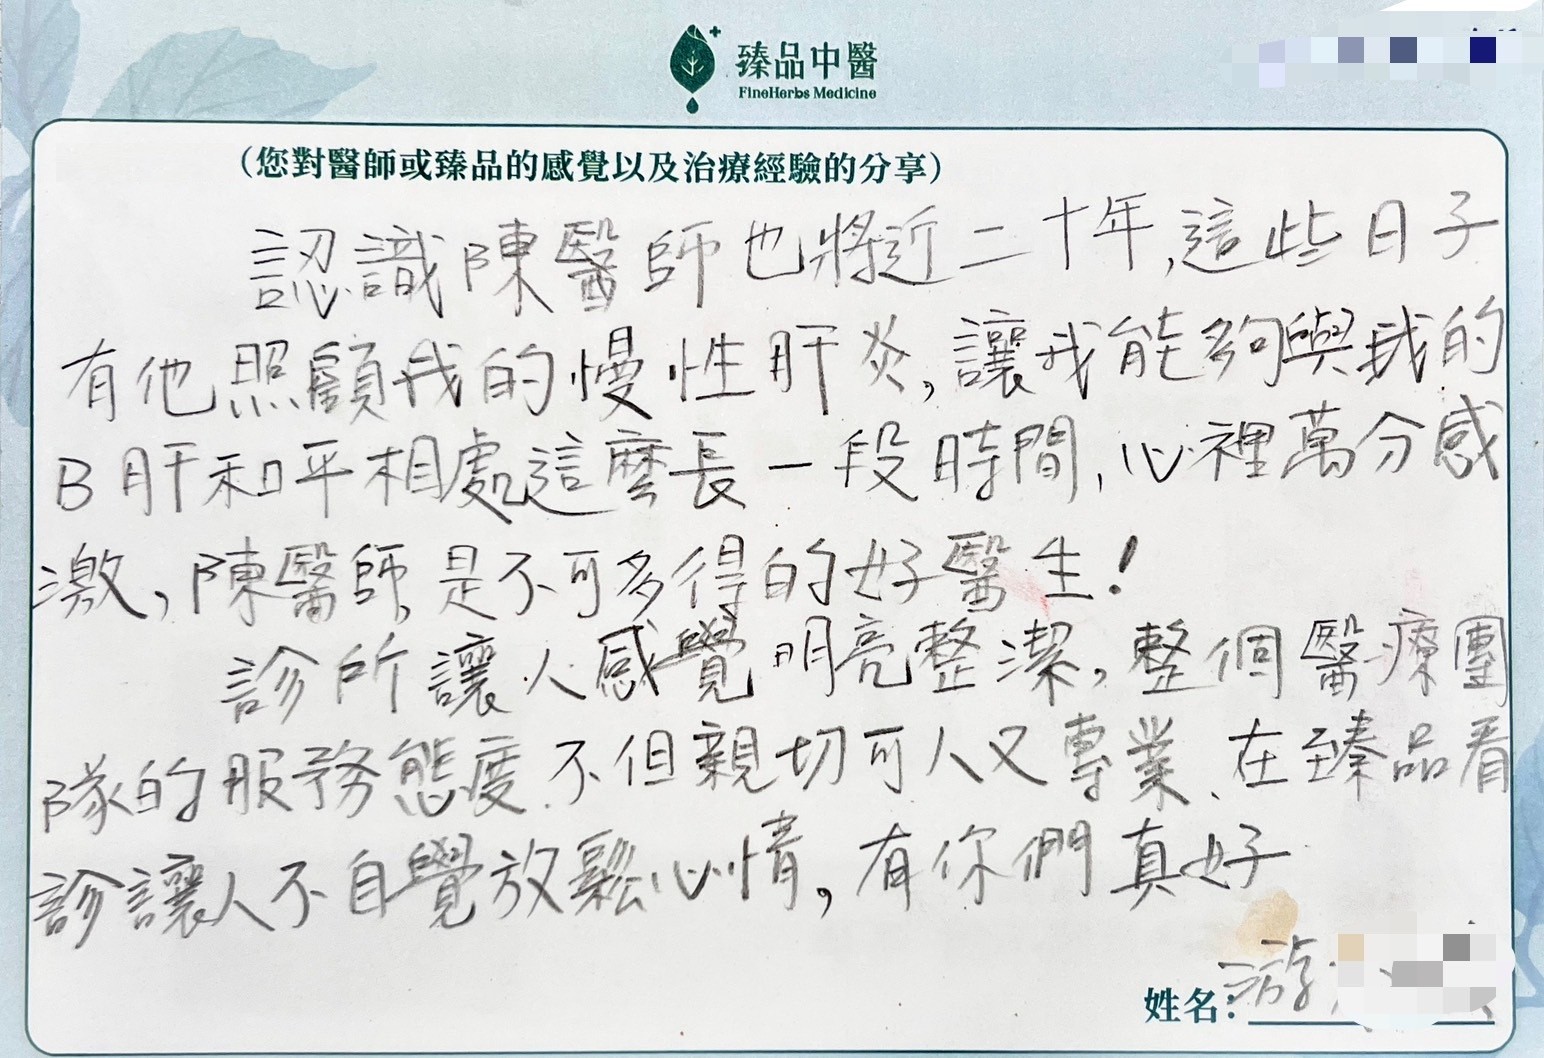 臻品中醫
FineHerbs Medicine
(您對醫師或臻品的感覺以及治療經驗的分享)
認識陳醫師也將近二十年,這些日子
有他照顧我的慢性肝炎,讓我能夠與我的
B肝和平相處這麼長一段時間,心裡萬分感
激,陳醫師是不可多得的好醫生!
診所讓人感覺明亮整潔,整個醫療團
隊的服務態度不但親切可人又專業、在臻品看
診讓人不自覺放鬆心情,有你們真好
姓名:游